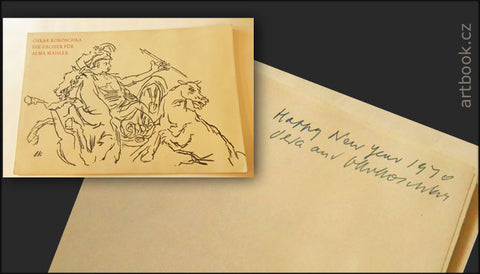 OSKAR KOKOSCHKA
DIE FÄCHER FÜR
ALMA MAHLER
OK
Happy New Year 1970
Olda and OKokoschka
artbook.cz